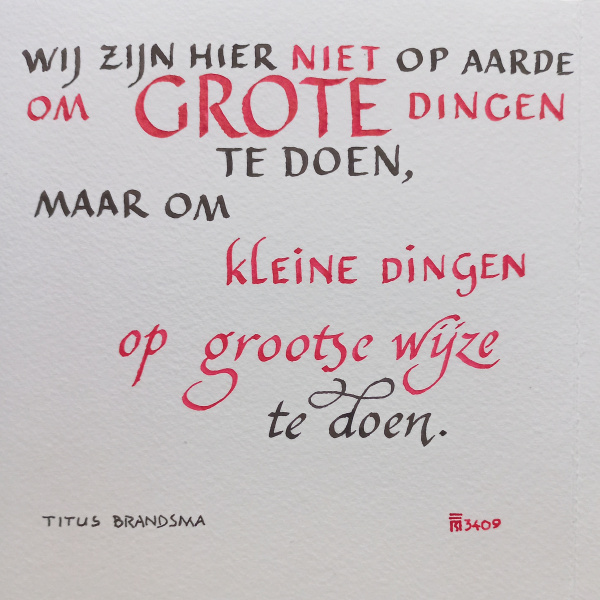 WIJ ZIJN HIER NIET OP AARDE
OM GROTE DINGEN
TE DOEN,
MAAR OM
kLEINE DINGEN
op grootse wijze
te doen.
TITUS BRANDSMA
3409